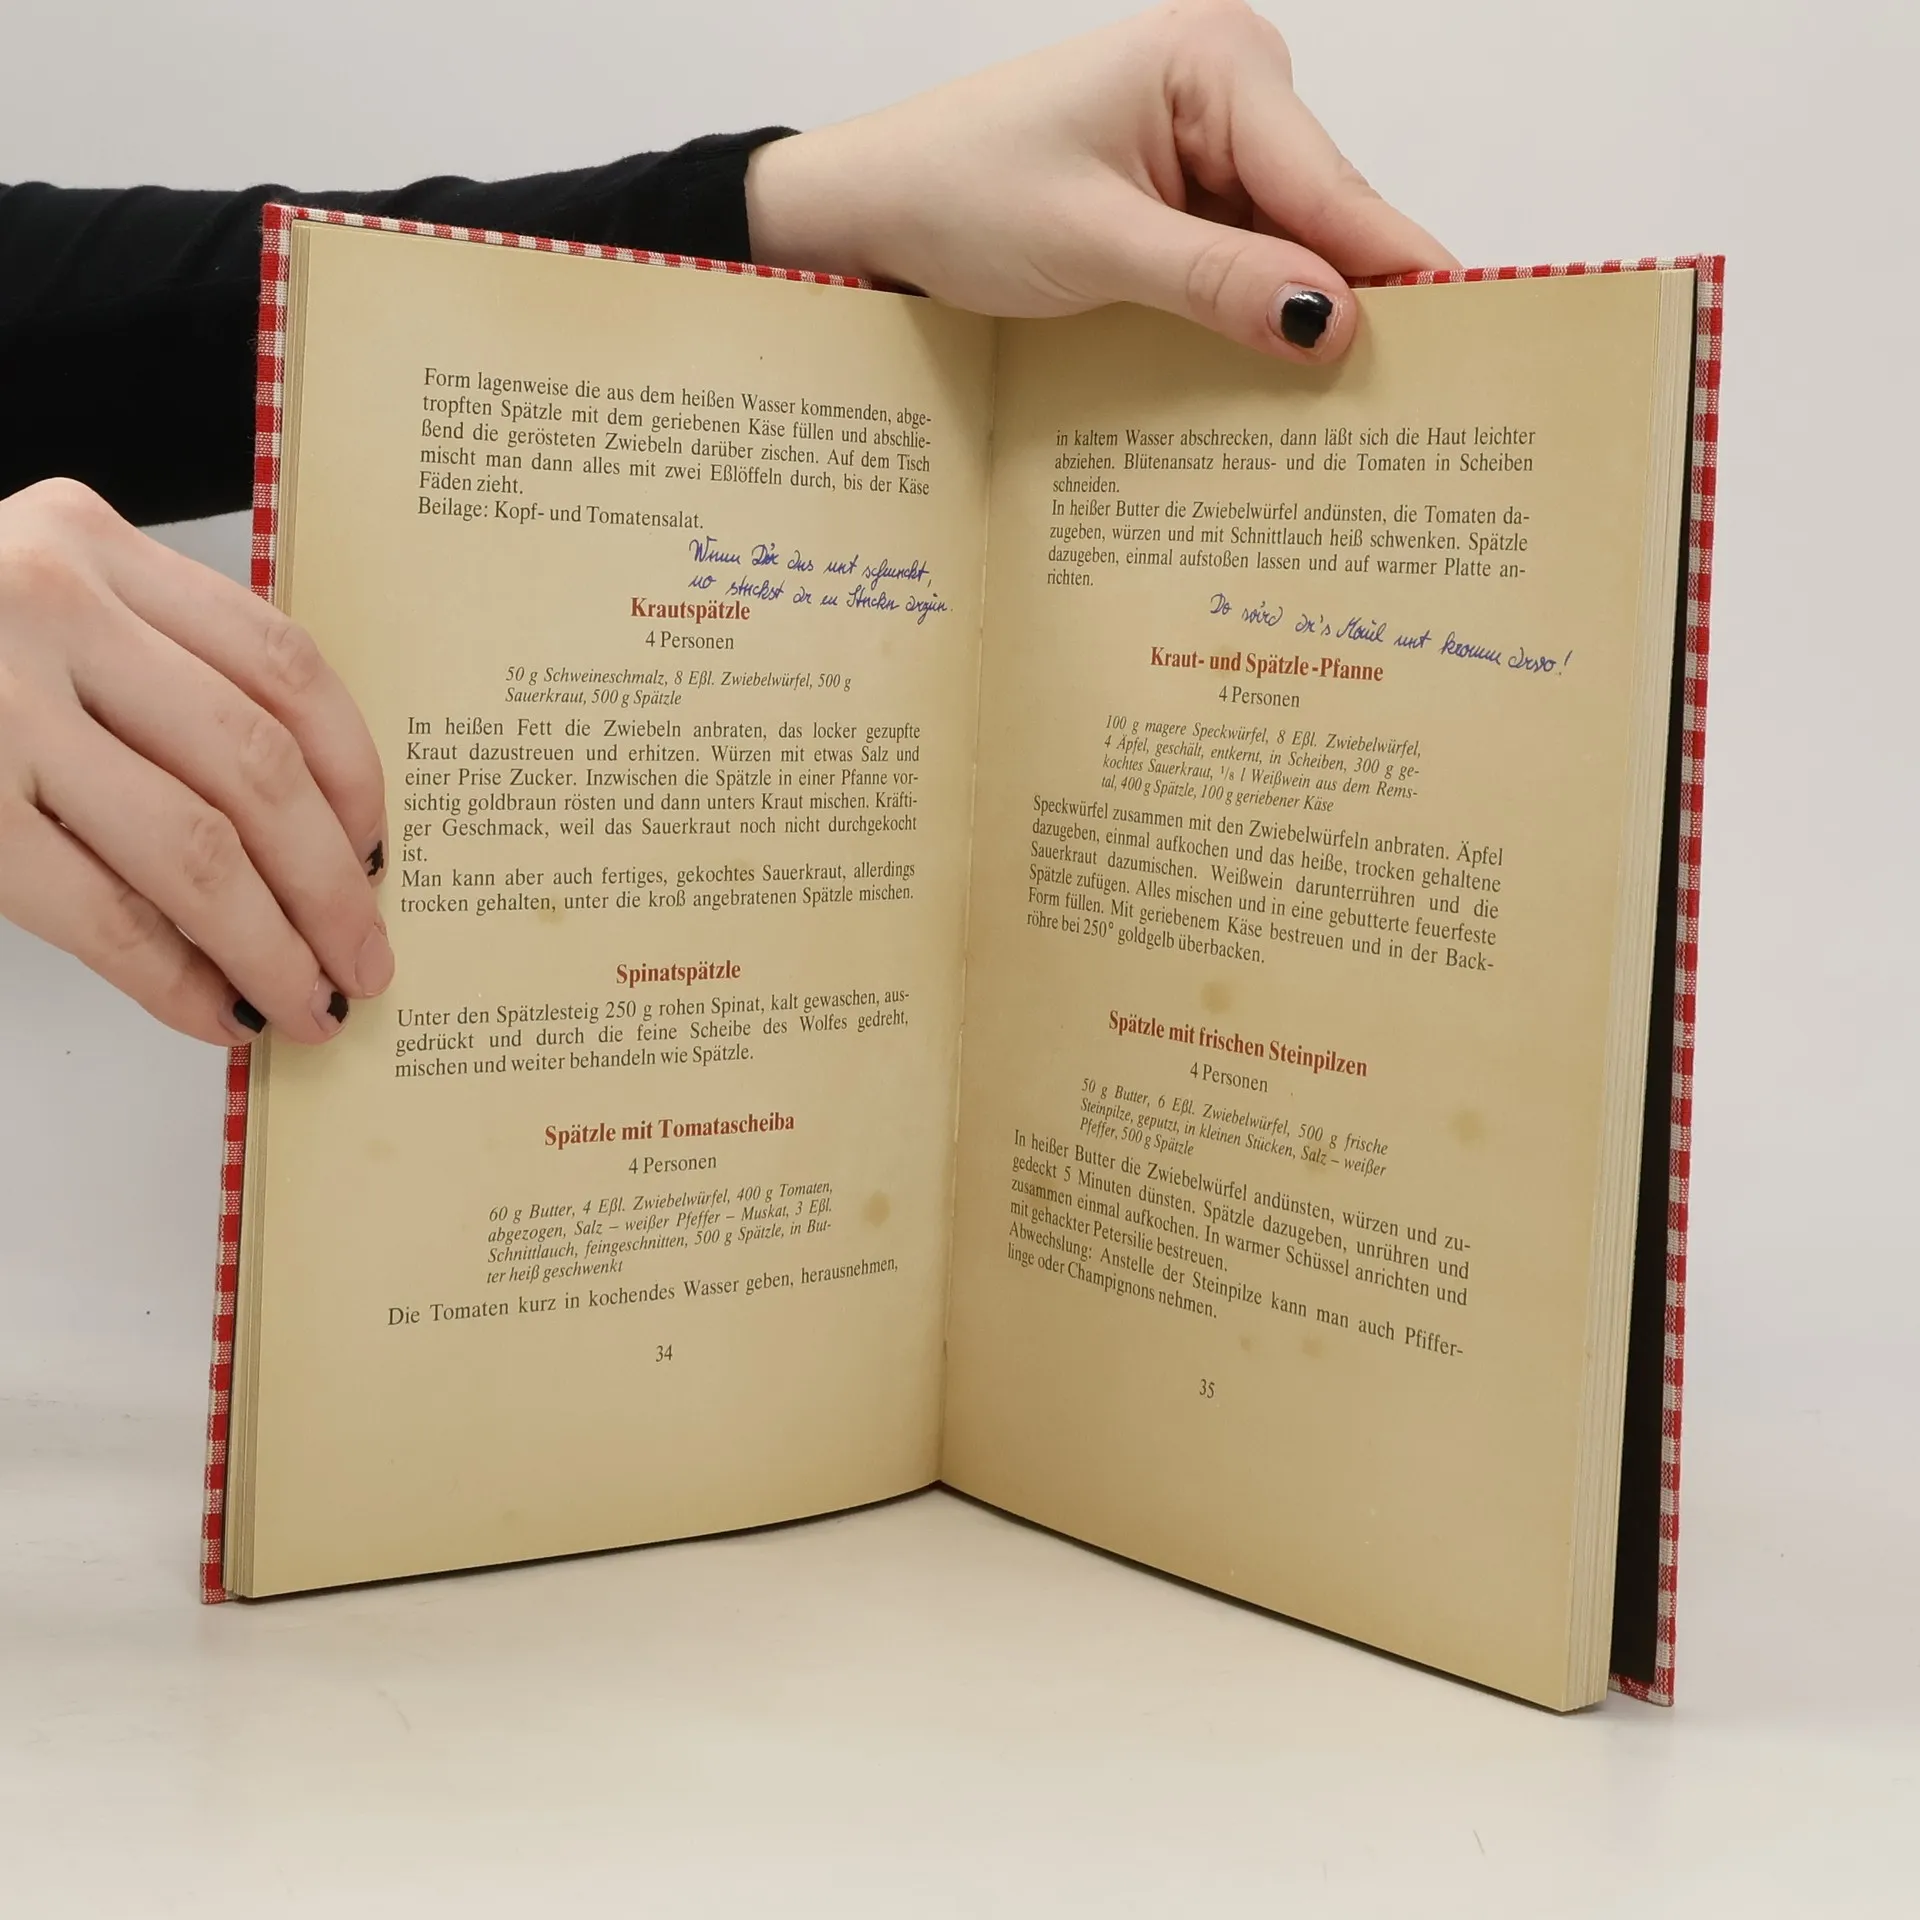 Form lagenweise die aus dem heißen Wasser kommenden, abge-
tropften Spätzle mit dem geriebenen Käse füllen und abschlie-
ßend die gerösteten Zwiebeln darüber zischen. Auf dem Tisch
mischt man dann alles mit zwei Eßlöffeln durch, bis der Käse
Fäden zieht.
Beilage: Kopf- und Tomatensalat.
Wenn Dir das net schmeckt,
no steckst dr en Stecka
Krautspätzle
4 Personen
50 g Schweineschmalz, 8 Eßl. Zwiebelwürfel, 500 g
Sauerkraut, 500 g Spätzle
Im heißen Fett die Zwiebeln anbraten, das locker gezupfte
Kraut dazustreuen und erhitzen. Würzen mit etwas Salz und
einer Prise Zucker. Inzwischen die Spätzle in einer Pfanne vor-
sichtig goldbraun rösten und dann unters Kraut mischen. Kräfti-
ger Geschmack, weil das Sauerkraut noch nicht durchgekocht
ist.
Man kann aber auch fertiges, gekochtes Sauerkraut, allerdings
trocken gehalten, unter die kroß angebratenen Spätzle mischen.
Spinatspätzle
Unter den Spätzlesteig 250 g rohen Spinat, kalt gewaschen, aus-
gedrückt und durch die feine Scheibe des Wolfes gedreht,
mischen und weiter behandeln wie Spätzle.
Spätzle mit Tomatascheiba
4 Personen
60 g Butter, 4 Eßl. Zwiebelwürfel, 400 g Tomaten,
abgezogen, Salz – weißer Pfeffer – Muskat, 3 Eßl.
Schnittlauch, feingeschnitten, 500 g Spätzle, in But-
ter heiß geschwenkt
Die Tomaten kurz in kochendes Wasser geben, herausnehmen,
34
in kaltem Wasser abschrecken, dann läßt sich die Haut leichter
abziehen. Blütenansatz heraus- und die Tomaten in Scheiben
schneiden.
In heißer Butter die Zwiebelwürfel andünsten, die Tomaten da-
zugeben, würzen und mit Schnittlauch heiß schwenken. Spätzle
dazugeben, einmal aufstoßen lassen und auf warmer Platte an-
richten.
Do wird dr's Maul net kromm drvo!
Kraut- und Spätzle-Pfanne
4 Personen
100 g magere Speckwürfel, 8 Eßl. Zwiebelwürfel,
4 Äpfel, geschält, entkernt, in Scheiben, 300 g ge-
kochtes Sauerkraut, 1/8 l Weißwein aus dem Rems-
tal, 400 g Spätzle, 100 g geriebener Käse
Speckwürfel zusammen mit den Zwiebelwürfeln anbraten. Äpfel
dazugeben, einmal aufkochen und das heiße, trocken gehaltene
Sauerkraut dazumischen. Weißwein darunterrühren und die
Spätzle zufügen. Alles mischen und in eine gebutterte feuerfeste
Form füllen. Mit geriebenem Käse bestreuen und in der Back-
röhre bei 250° goldgelb überbacken.
Spätzle mit frischen Steinpilzen
4 Personen
50 g Butter, 6 Eßl. Zwiebelwürfel, 500 g frische
Steinpilze, geputzt, in kleinen Stücken, Salz – weißer
Pfeffer, 500 g Spätzle
In heißer Butter die Zwiebelwürfel andünsten, würzen und zu-
gedeckt 5 Minuten dünsten. Spätzle dazugeben, unrühren und
zusammen einmal aufkochen. In warmer Schüssel anrichten und
mit gehackter Petersilie bestreuen.
Abwechslung: Anstelle der Steinpilze kann man auch Pfiffer-
linge oder Champignons nehmen.
35